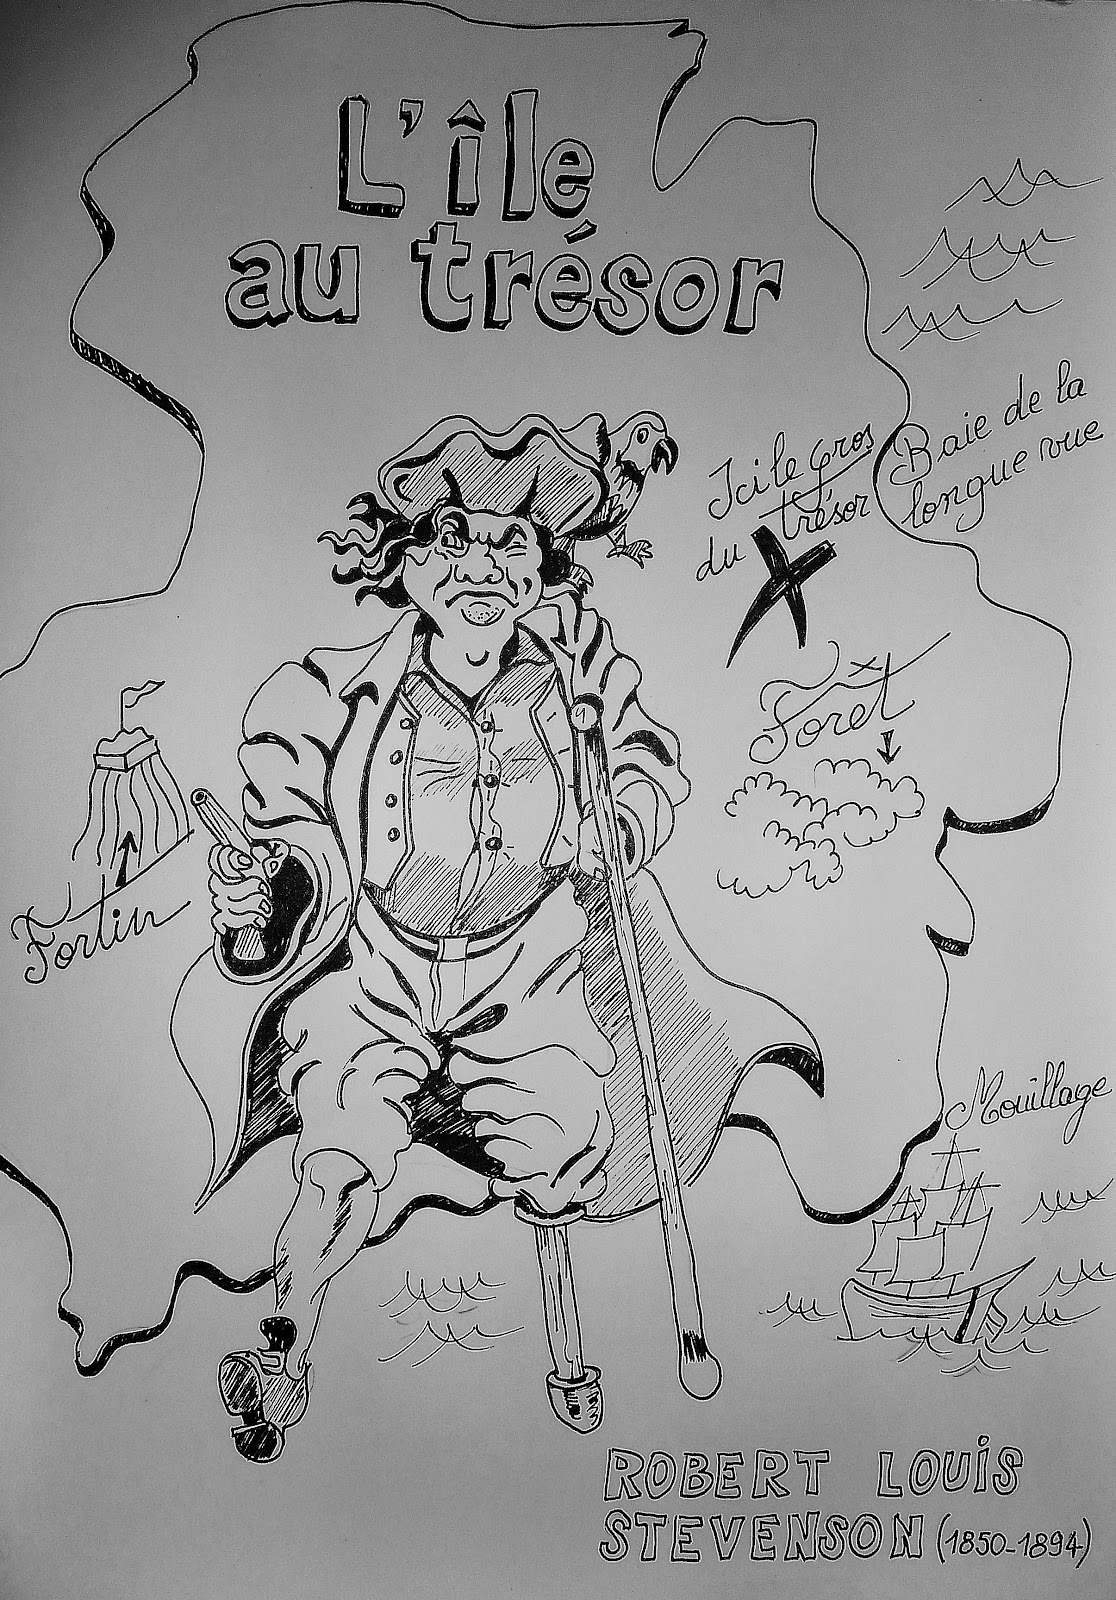 L'île
au trésor
Ici le gros
du trésor
Baie de la
longue vue
Forêt
Fortin
Mouillage
ROBERT LOUIS
STEVENSON (1850-1894)